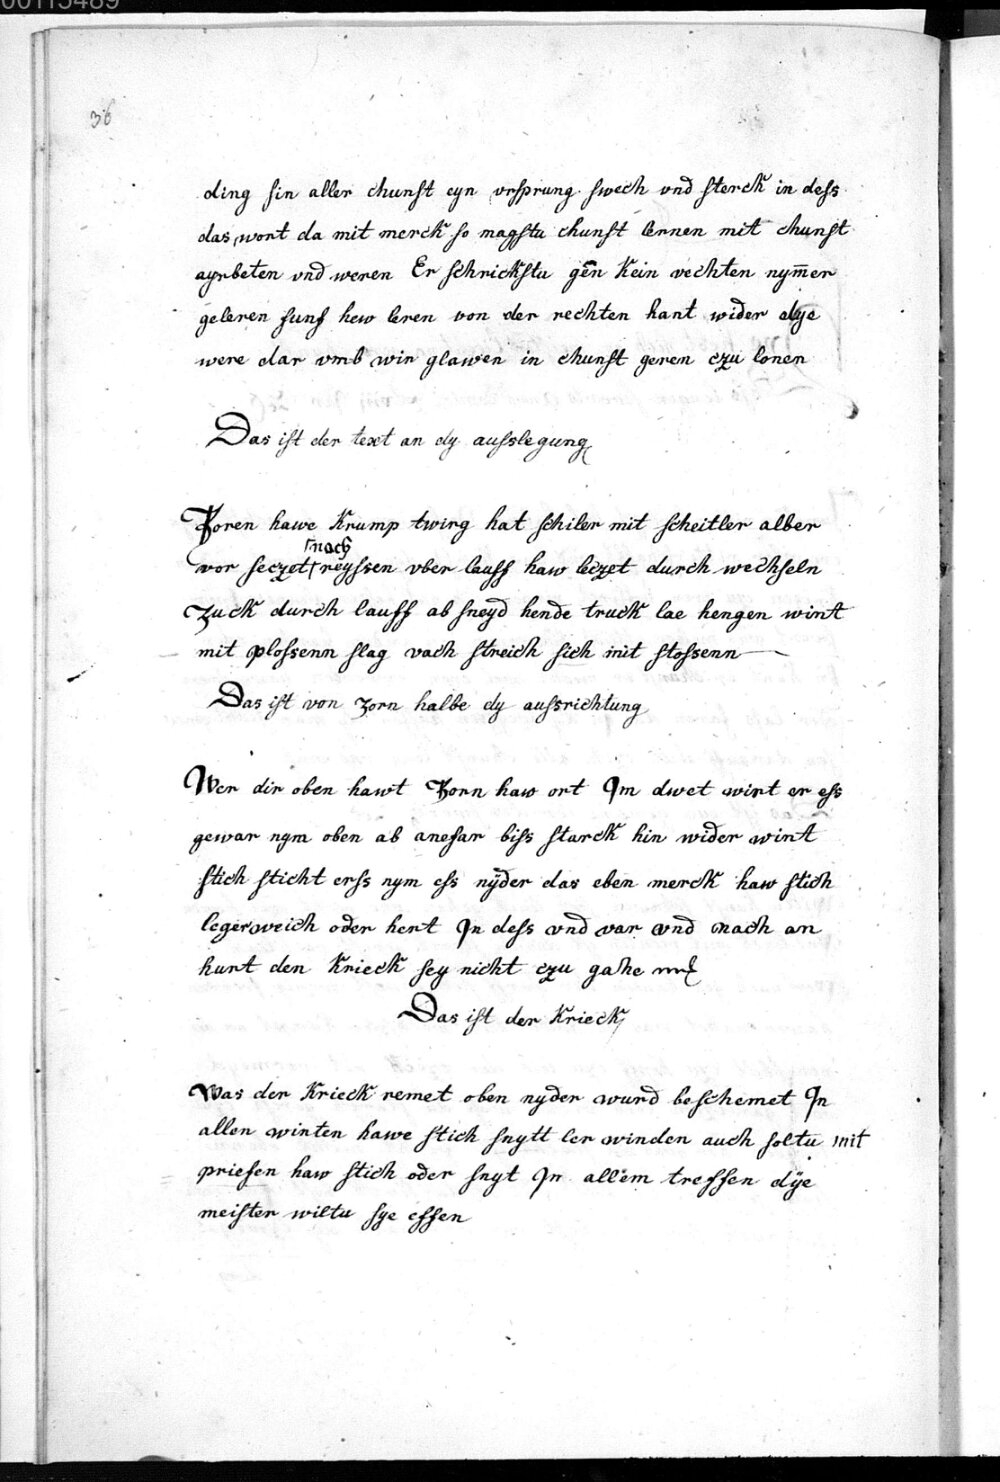 00115489
36
ding sin aller chunst eyn vrsprung swech vnd sterck in dess
das wort da mit merck so magstu chunst lernen mit chunst
ayrbeten vnd weren Er schrickstu gēn Kein vechten nym̄er
geleren funf hew leren von der rechten hant wider dye
were dar vmb wir glawen in chunst geren czu lonen
Das ist der text an dy aufslegung
Zoren hawe Krump twirg hat schiler mit scheitler alber
nach
vor seczet reyssen vber lauff haw leczet durch wechseln
Zuck durch lauff ab sneyd hende truck lae hengen wint
mit plossenn slag vach streich sich mit stossenn
Das ist von zorn halbe dy aussrichtung
Wer dir oben hawt Zorn haw ort Im dwet wirt er ess
gewar nym oben ab anefar biss starck hin wider wint
stich sticht erss nym ess nÿder das eben merck haw stich
leger weich oder hert In dess vnd var vnd nach an
hurt den Krieck sey nicht czu gahe
Das ist der Krieck
Was der Krieck remet oben nyder wurd beschemet In
allen winten hawe stich snytt ler winden auch soltu mit
priefen haw stich oder snyt In allem treffen dÿe
meister wiltu sye effen